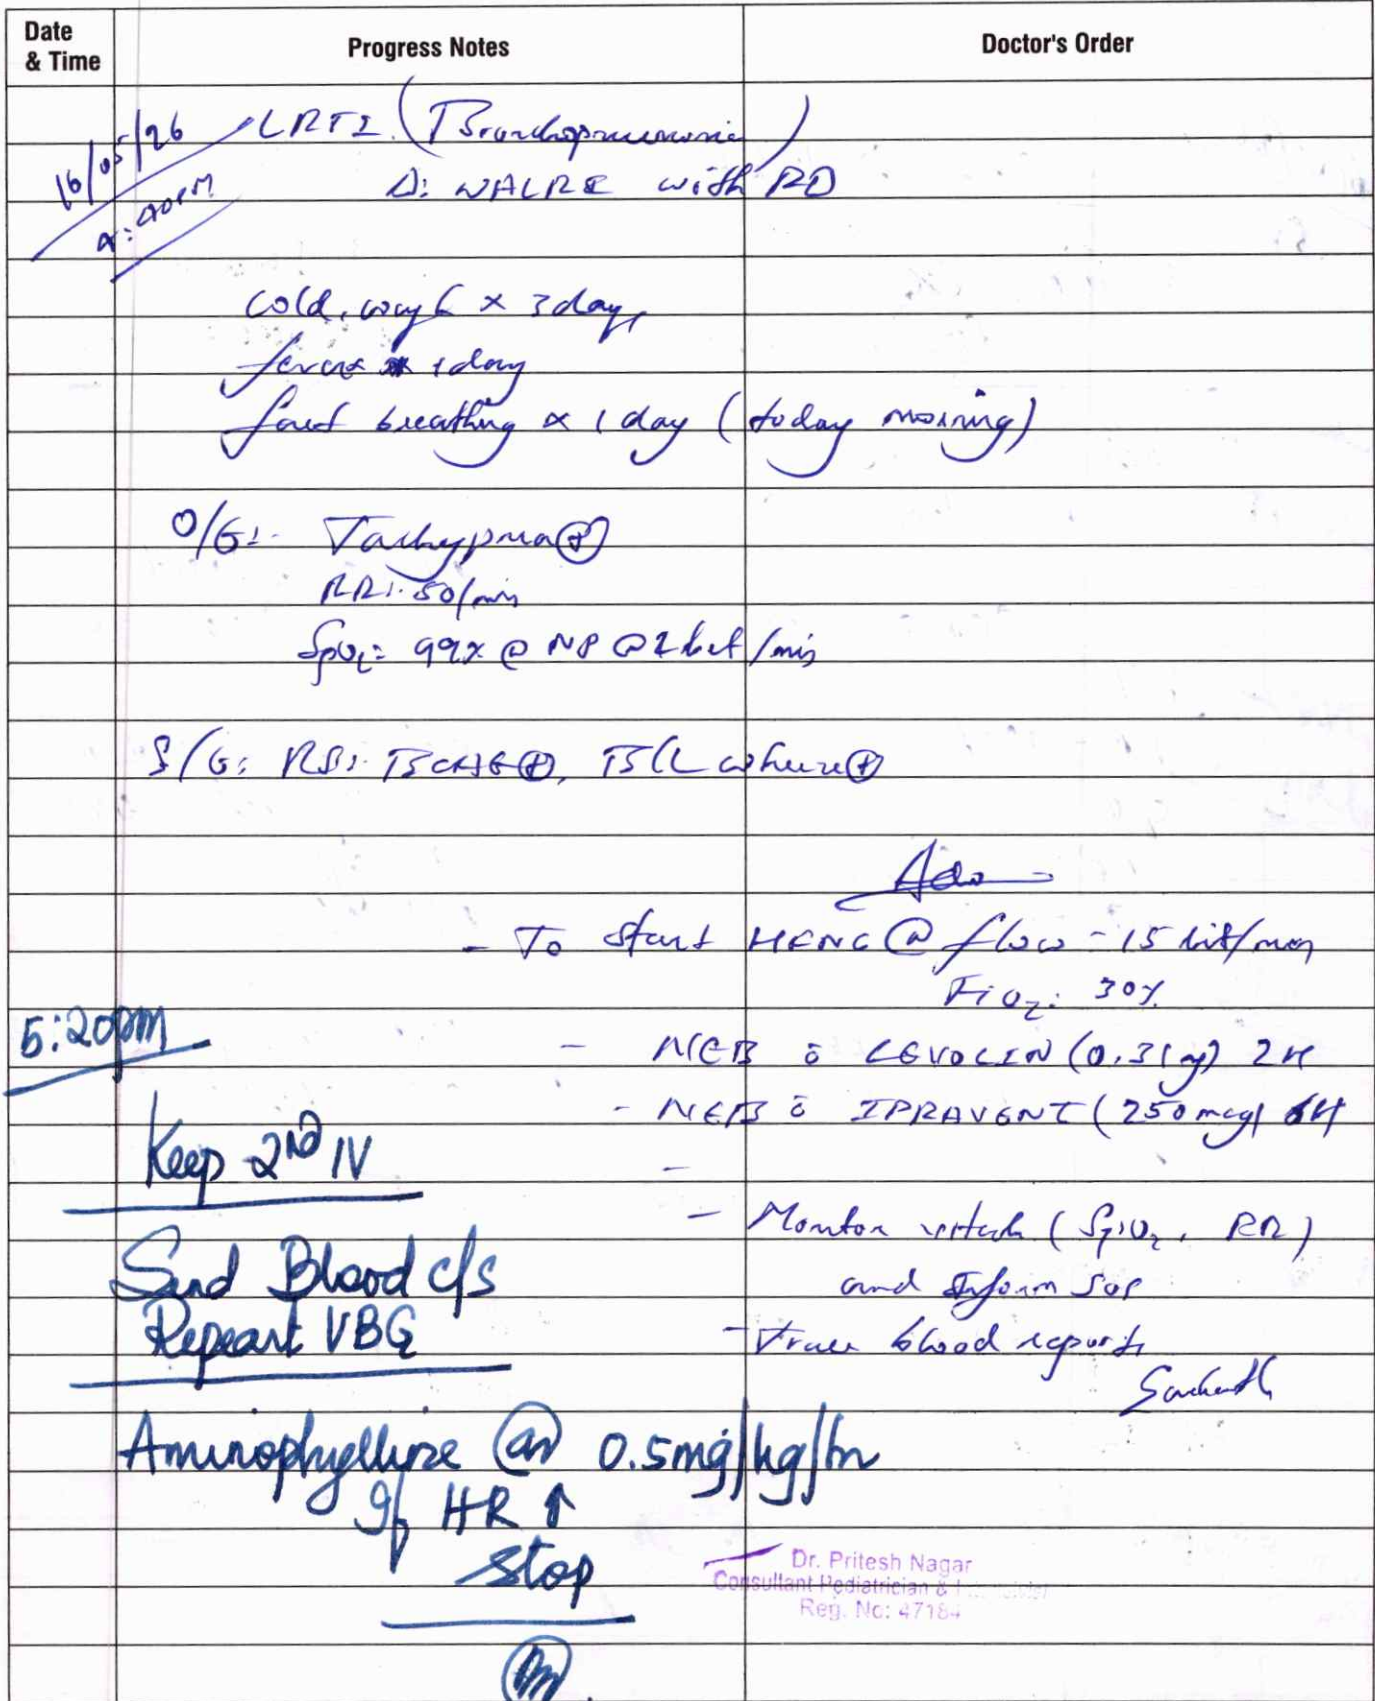 Date & Time
Progress Notes
Doctor's Order
16/05/26
LRTI (Bronchopneumonia)
Δ: WALRI with RD
:40PM
cold, cough x 3 days
fever x 1 day
fast breathing x 1 day (today morning)
O/E:- Tachypnea ⊕
RR:- 50/min
SpO2: 99% @ NP @ 2 lit/min
S/E: RS:- BLAE ⊕, B/L wheeze ⊕
Adv
- To start HFNC @ flow - 15 lit/min
FiO2: 30%
5:20pm
- NEB c̄ LEVOLIN (0.31 mg) 2H
- NEB c̄ IPRAVENT (250 mcg) 6H
Keep 2nd IV
-
- Monitor vitals (SpO2, RR)
Send Blood c/s
and Inform SOS
Repeat VBG
- Trace blood reports
Aminophylline @ 0.5mg/kg/hr
If HR ↑
Stop
Dr. Pritesh Nagar
Consultant Pediatrician &
Reg. No: 47184